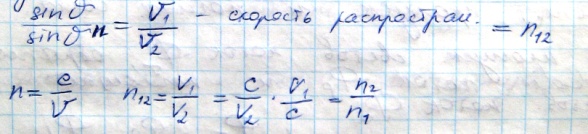 sin ϑ / sin ϑn = v1 / v2 – скорость распростран. = n12
n = c / v   n12 = v1 / v2 = c / v2 · v1 / c = n2 / n1